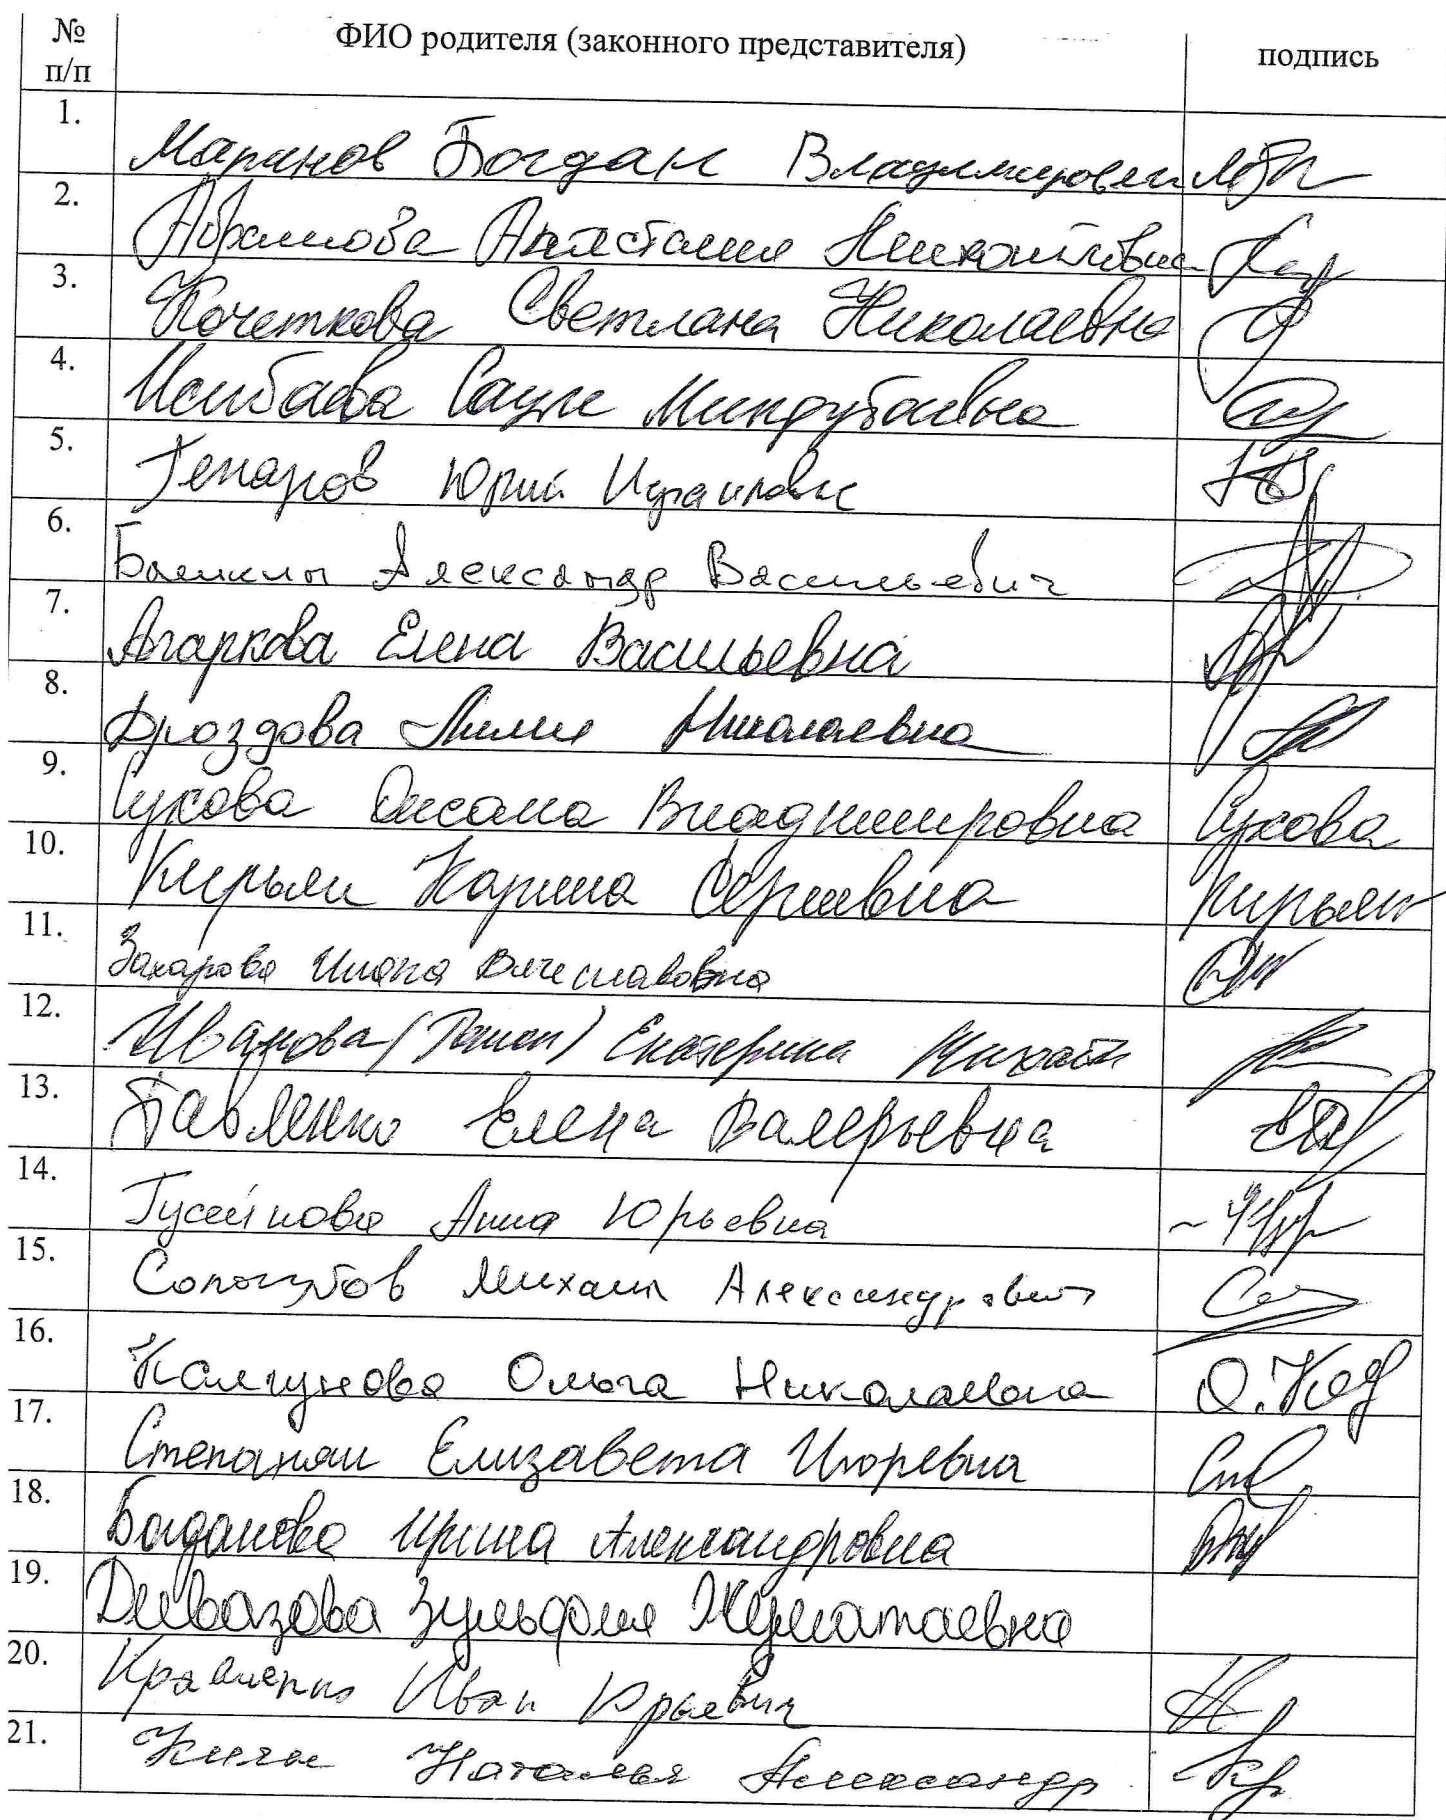 № п/п ФИО родителя (законного представителя) подпись
1. Маринов Богдан Владимирович
2. Абрамова Анастасия
3. Кочеткова Светлана Николаевна
4. Сауле
5. Юрий
6. Александр Васильевич
7. Агаркова Елена Васильевна
8. Дроздова Лилия Николаевна
9. Сухова Оксана Владимировна Сухова
10. Кирьян Карина Сергеевна Кирьян
11. Захарова Вячеславовна
12. Иванова ( ) Екатерина
13. Павленко Елена Валерьевна
14. Гусейнова Анна Юрьевна
15. Михаил Александрович
16. Калгунова Ольга Николаевна О.
17. Степанян Елизавета Игоревна
18. Богданова Ирина Александровна
19. Зульфия Жуматаевна
20. Кравченко Иван Юрьевич
21. Наталья Александр